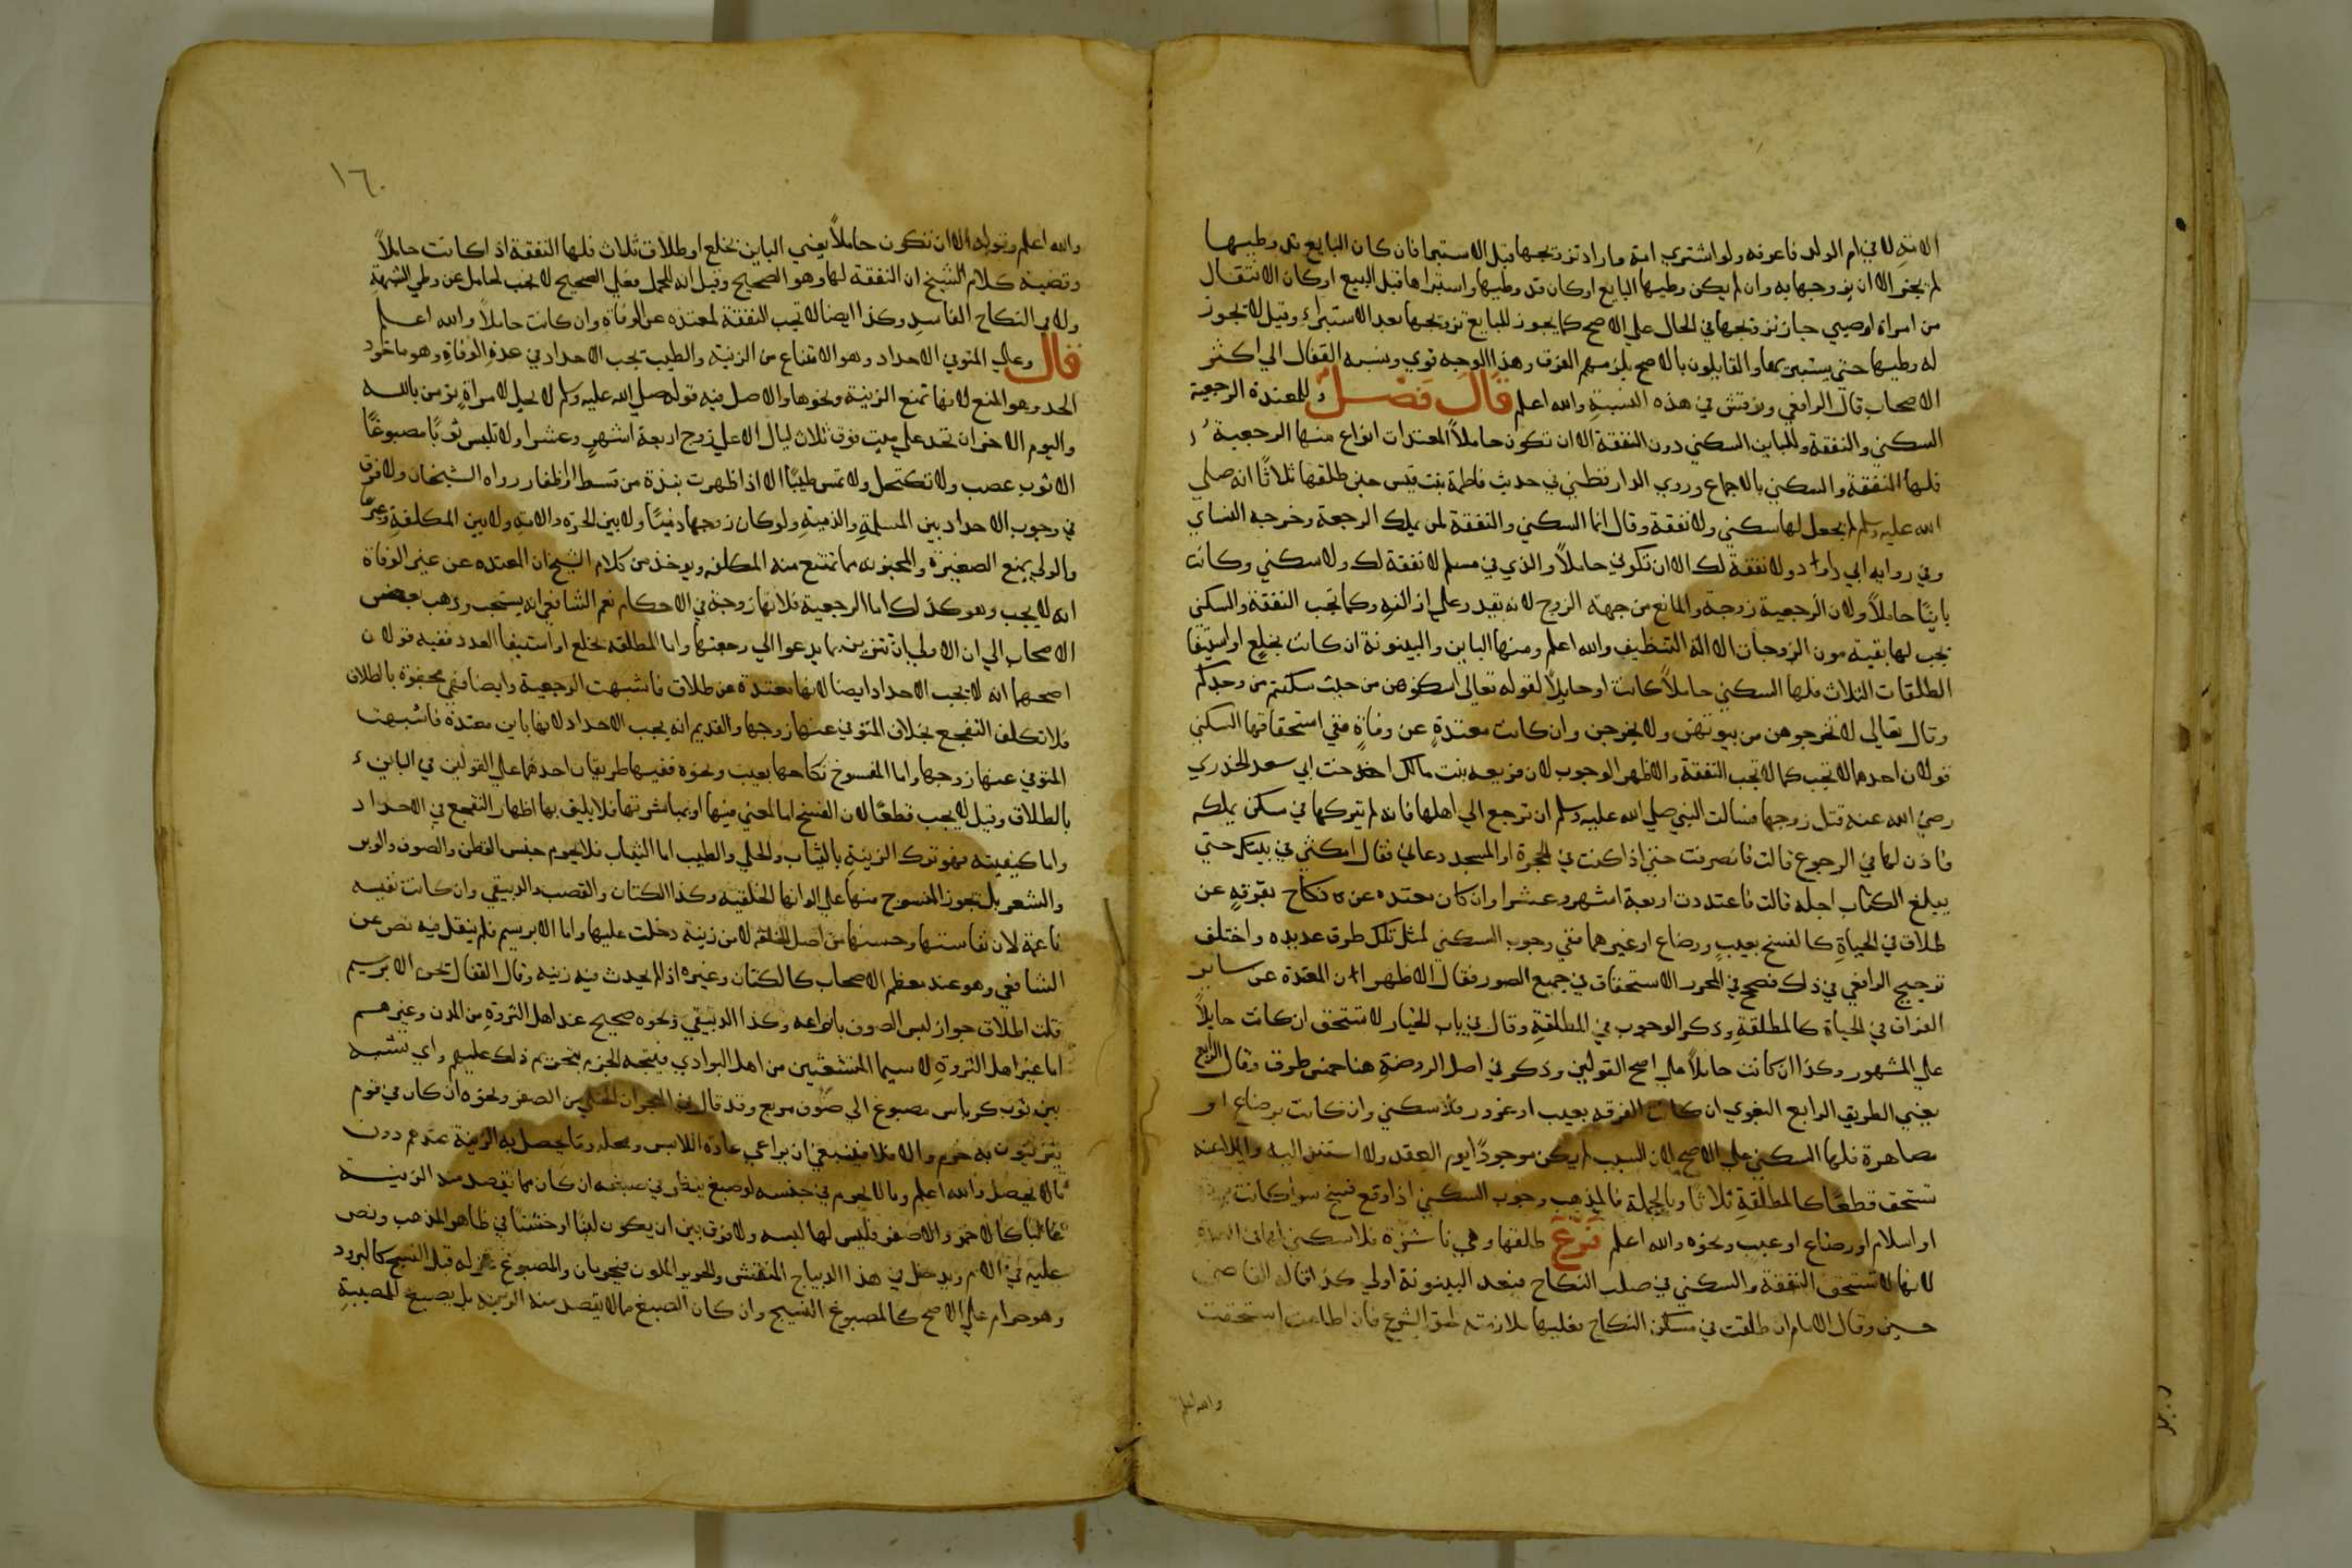 الامة لا في ام الولد فاعرفه ولو اشتري امة واراد تزويجها قبل الاستبرا فان كان البايع قد وطيها
لم يجز الا ان يزوجها به وان لم يكن وطيها البايع او كان قد وطيها واستبراها قبل البيع او كان الانتقال
من امراة او صبي جاز تزويجها في الحال علي الاصح كما يجوز للبايع تزويجها بعد الاستبراء وقيل لا تجوز
له وطيها حتي يستبريها والقايلون بالاصح يلزمهم الفرق وهذا الوجه قوي ونسبه القفال الي اكثر
الاصحاب قال الرافعي ولا تنس في هذه النسبة والله اعلم قال فصل وللمعتدة الرجعية
السكني والنفقة وللباين السكني دون النفقة الا ان تكون حاملاً المعتدات انواع منها الرجعية
فلها النفقة والسكني بالاجماع وروي الدارقطني في حديث فاطمة بنت قيس حين طلقها ثلاثًا انه صلي
الله عليه وسلم لم يجعل لها سكني ولا نفقة وقال انما السكني والنفقة لمن يملك الرجعة وخرجه النساي
وفي رواية ابي داود ولا نفقة لك الا ان تكوني حاملاً والذي في مسلم لا نفقة لك ولا سكني وكانت
باينًا حاملاً ولان الرجعية زوجة والمانع من جهة الزوج لانه يقدر علي ازالته وكما تجب النفقة والسكني
يجب لها بقية مون الزوجات الا الة التنظيف والله اعلم ومنها الباين والبينونة ان كانت بخلع او استيفا
الطلقات الثلاث فلها السكني حاملاً كانت او حايلاً لقوله تعالي اسكنوهن من حيث سكنتم من وجدكم
وقال تعالي لا تخرجوهن من بيوتهن ولا يخرجن وان كانت معتدة عن وفاة ففي استحقاقها السكني
قولان احدهما لا تجب كما لا تجب النفقة والاظهر الوجوب لان فريعه بنت مالك اخت ابي سعد الخدري
رضي الله عنه قتل زوجها فسالت النبي صلي الله عليه وسلم ان ترجع الي اهلها فانه لم يتركها في مسكن يملكه
فاذن لها في الرجوع قالت فانصرفت حتي اذا كنت في الحجرة او المسجد دعاني فقال امكثي في بيتك حتي
يبلغ الكتاب اجله قالت فاعتددت اربعة اشهر وعشرا وان كان معتده عن نكاح بفرقة عن
طلاق في الحياة كالفسخ بعيب ورضاع او غيرهما ففي وجوب السكني لمثل تلك طرق عديده واختلف
ترجيح الرافعي في ذلك فصحح في المحرر الاستحقاق في جميع الصور فقال الاظهر ان المعتدة عن ساير
الفراق في الحياة كالمطلقة وذكر الوجوب في المطلقة وقال في باب الخيار لا تستحق ان كانت حايلاً
علي المشهور وكذا ان كانت حاملاً علي اصح القولين وذكر في اصل الروضة هنا خمس طرق وقال الرابع
يعني الطريق الرابع البغوي ان كانت الفرقه بعيب او غرور فلا سكني وان كانت برضاع او
مصاهرة فلها السكني علي الاصح لان السبب لم يكن موجودًا يوم العقد ولا استند اليه والملاعنه
تستحق قطعًا كالمطلقة ثلاثًا وبالجملة فالمذهب وجوب السكني اذا وقع فسخ سوا كانت
او اسلام او رضاع او عيب ونحوه والله اعلم فرع طلقها وهي ناشزة فلا سكني لها في العدة
لانها لا تستحق النفقة والسكني في صلب النكاح فبعد البينونة اولي كذا قاله القاضي
حسين وقال الامام ان طلقت في مسكن النكاح فعليها ملازمته لحق الشرع فان اطاعت استحقت
والله اعلم
١٦٠
والله اعلم وقوله الا ان تكون حاملاً يعني الباين بخلع او طلاق ثلاث فلها النفقة اذا كانت حاملاً
وقضية كلام الشيخ ان النفقة لها وهو الصحيح وقيل انه للحمل فعلي الصحيح لا تجب لحامل عن وطي الشبهة
ولا في النكاح الفاسد وكذا ايضا لا تجب النفقة لمعتده عن الوفاة وان كانت حاملاً والله اعلم
قال وعلي المتوفي الاحداد وهو الامتناع من الزينة والطيب يجب الاحداد في عدة الوفاة وهو ماخوذ
الحد وهو المنع لانها تمنع الزينة ونحوها والاصل فيه قوله صلي الله عليه وسلم لا يحل لامراة تؤمن بالله
واليوم الاخر ان تحد علي ميت فوق ثلاث ليال الا علي زوج اربعة اشهر وعشرا ولا تلبس ثوبًا مصبوغًا
الا ثوب عصب ولا تكتحل ولا تمس طيبًا الا اذا طهرت نبذة من قسط او اظفار رواه الشيخان ولا فرق
في وجوب الاحداد بين المسلمة والذمية ولو كان زوجها ذميًا ولا بين الحرة والامة ولا بين المكلفة وغيرها
والولي يمنع الصغيرة والمجنونه مما تمتنع منه المكلفه ويوخذ من كلام الشيخ ان المعتده عن غير الوفاة
انه لا يجب وهو كذلك اما الرجعية فلانها زوجة في الاحكام نعم الشافعي انه يستحب وذهب بعض
الاصحاب الي ان الاولي بان تتزين بما يدعوا الي رجعتها واما المطلقه بخلع او استيفا العدد ففيه قولان
اصحهما انه لا يجب الاحداد ايضا لانها معتدة عن طلاق فاشبهت الرجعية وايضا فهي مجفوة بالطلاق
فلا تكلف التفجع بخلاف المتوفي عنها زوجها والقديم انه يجب الاحداد لانها باين معتدة فاشبهت
المتوفي عنها زوجها واما المفسوخ نكاحها بعيب ونحوه ففيها طريقان احدهما علي القولين في الباين
بالطلاق وقيل لا يجب قطعًا لان الفسخ اما لمعني فيها او بمباشرتها فلا يليق بها اظهار التفجع في الاحداد
واما كيفيته فهو ترك الزينة بالثياب والحلي والطيب اما الثياب فلا يحرم جنس القطن والصوف والوبر
والشعر بل تجوز المنسوج منها علي الوانها الخلقيه وكذا الكتان والقصب والدبيقي وان كانت نفيسه
ناعمة لان نفاستها وحسنها من اصل الخلقه لا من زينة دخلت عليها واما الابريسم فلم ينقل فيه نص عن
الشافعي وهو عند معظم الاصحاب كالكتان وغيره اذا لم يحدث فيه زينه وقال القفال تحرم الابريسم
قلت اطلاق جواز لبس الصوف بانواعه وكذا الدبيقي ونحوه صحيح عند اهل الثروة من المدن وغيرهم
اما غير اهل الثروة لا سيما المتشعثين من اهل البوادي فيتجه الجزم بتحريم ذلك عليهم واي نسبة
بين ثوب كرباس مصبوغ الي صوف مربع وقد قال في البحر ان الحلي من الصفر ونحوه ان كان في قوم
يتزينون به حرم والا فلا فينبغي ان يراعي عادة اللابس ومحله وما يحصل به الزينة عندهم دون
ما لا يحصل والله اعلم وما لا يحرم في جنسه لو صبغ ينظر في صبغه ان كان مما يقصد منه الزينة
غالبا كالاحمر والاصفر فليس لها لبسه ولا فرق بين ان يكون لينًا او خشنًا في ظاهر المذهب ونص
عليه في الام ويدخل في هذا الديباج المنقش والحرير الملون فيحرمان والمصبوغ غزله قبل النسج كالبرود
وهو حرام علي الاصح كالمصبوغ النسيج وان كان الصبغ مما لا يقصد منه الزينة بل يصبغ للمصيبة